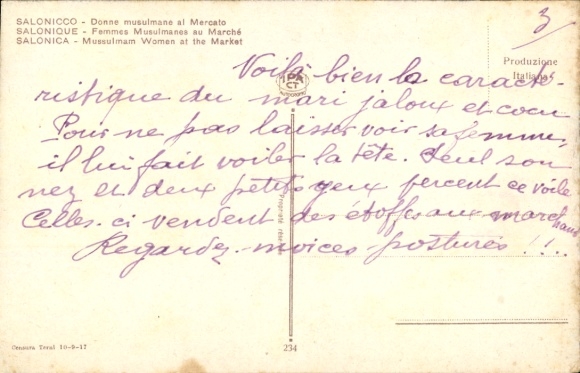 SALONICCO - Donne musulmane al Mercato
SALONIQUE - Femmes Musulmanes au Marché
SALONICA - Mussulmam Women at the Market
3
Produzione
Italiana
IPA
CT
Voilà bien la caracté-
ristique du mari jaloux et cocu
Pour ne pas laisser voir sa femme,
il lui fait voiler la tête. Seul son
nez et deux petits yeux percent ce voile
Celles-ci vendent des étoffes aux marchands
Regardez-moi ces postures !!!..
Proprieté réservée
Censura Terni 10-9-17
234